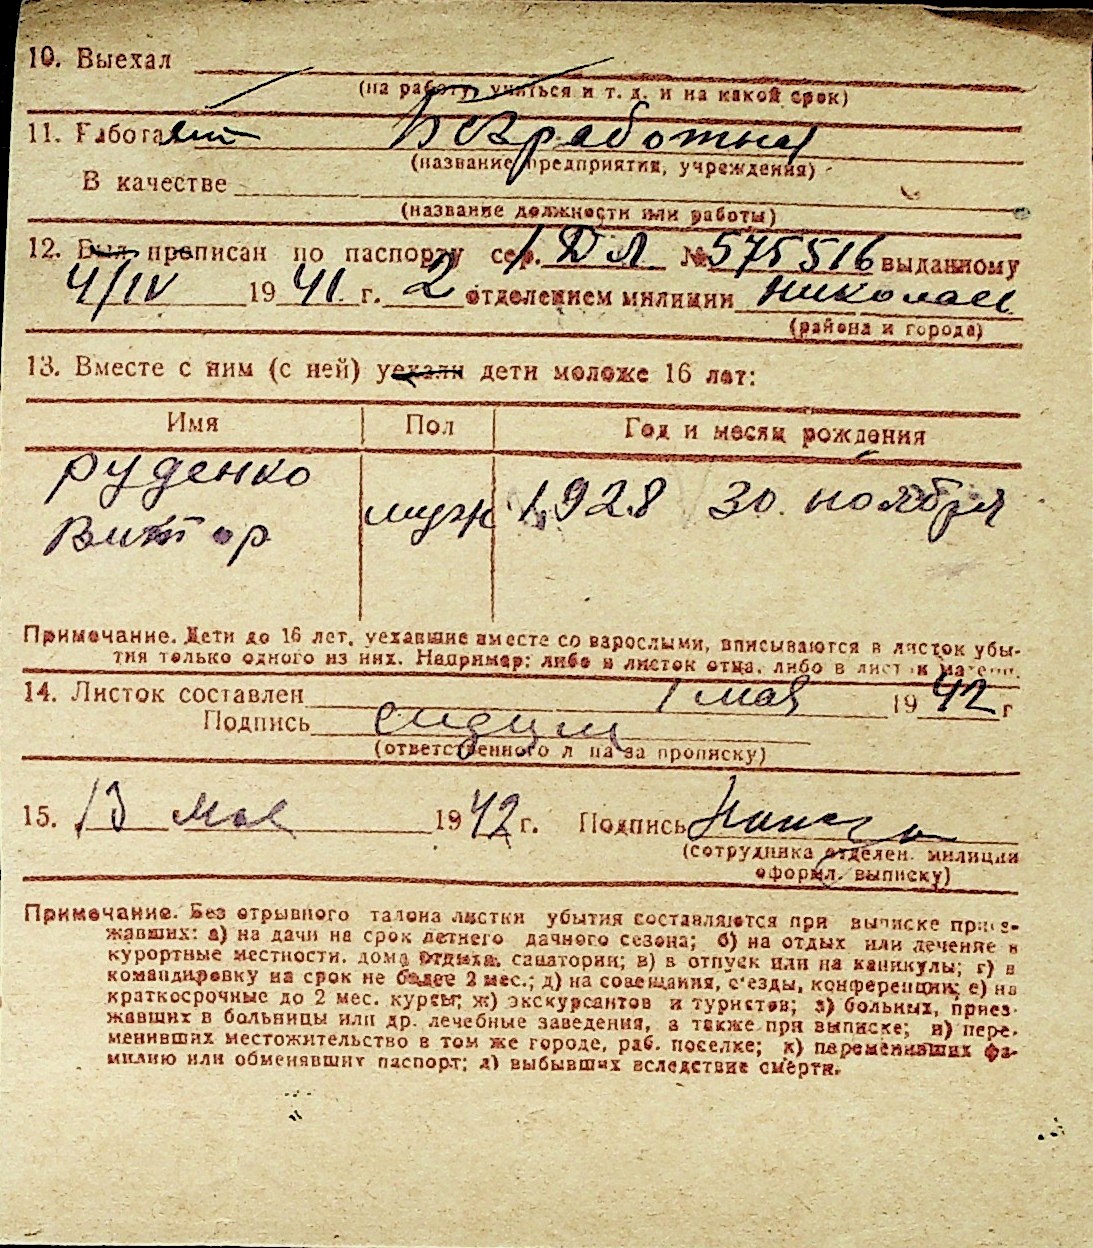 10. Выехал
(на работу, учиться и т. д. и на какой срок)
11. Работает Безработный
(название предприятия, учреждения)
В качестве
(название должности или работы)
12. Был прописан по паспорту сер. 1 ДЛ № 575516 выданному
4/IV 1941 г. 2 отделением милиции Николаев
(района и города)
13. Вместе с ним (с ней) уехали дети моложе 16 лет:
Имя Пол Год и месяц рождения
Руденко
Виктор муж 1928 30. ноября
Примечание. Дети до 16 лет, уехавшие вместе со взрослыми, вписываются в листок убы-
тия только одного из них. Например: либо в листок отца, либо в листок матери.
14. Листок составлен 1 мая 1942 г
Подпись
(ответственного лица за прописку)
15. 13 мая 1942 г. Подпись
(сотрудника отделен. милиции
оформл. выписку)
Примечание. Без отрывного талона листки убытия составляются при выписке приез-
жавших: а) на дачи на срок летнего дачного сезона; б) на отдых или лечение в
курортные местности, дома отдыха, санатории; в) в отпуск или на каникулы; г) в
командировку на срок не более 2 мес.; д) на совещания, с'езды, конференции; е) на
краткосрочные до 2 мес. курсы; ж) экскурсантов и туристов; з) больных, приез-
жавших в больницы или др. лечебные заведения, а также при выписке; и) пере-
менивших местожительство в том же городе, раб. поселке; к) переменивших фа-
милию или обменявших паспорт; л) выбывших вследствие смерти.